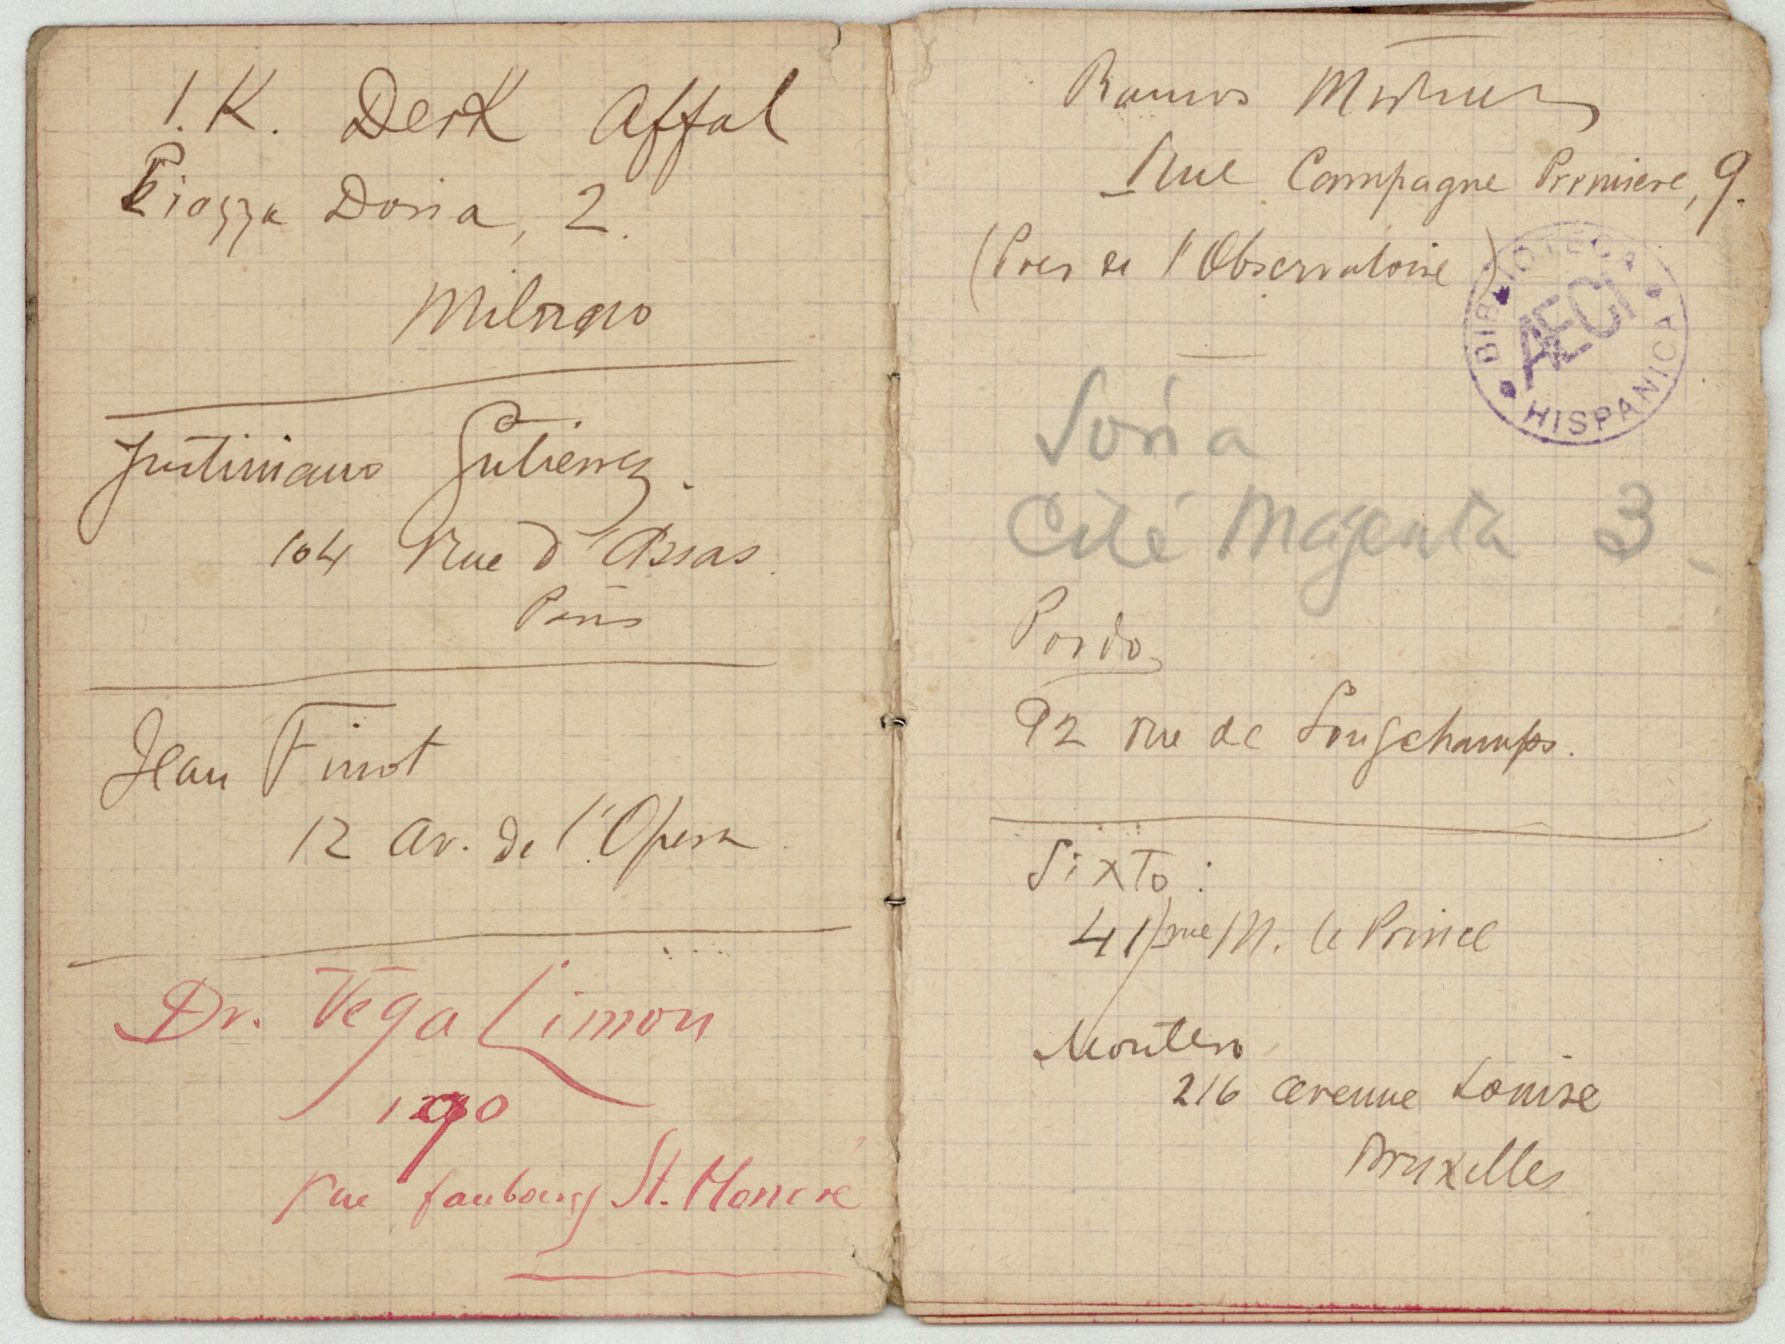 I. K. Derk Affal
Piazza Doria, 2.
Milano
Justiniano Gutierrez.
104 Rue d'Assas.
Paris
Jean Finot
12 av. de l'Opera
Dr. Vega Limon
190
rue faubourg St. Honoré
Ramos
Rue Campagne Premiere, 9.
(Pres de l'Observatoire)
BIBLIOTECA HISPANICA
AECI
Soria
Cité Magenta 3.
Pardo
92 rue de Longchamps.
Sixto:
41 rue M. le Prince
Montero
216 avenue Louise
Bruxelles